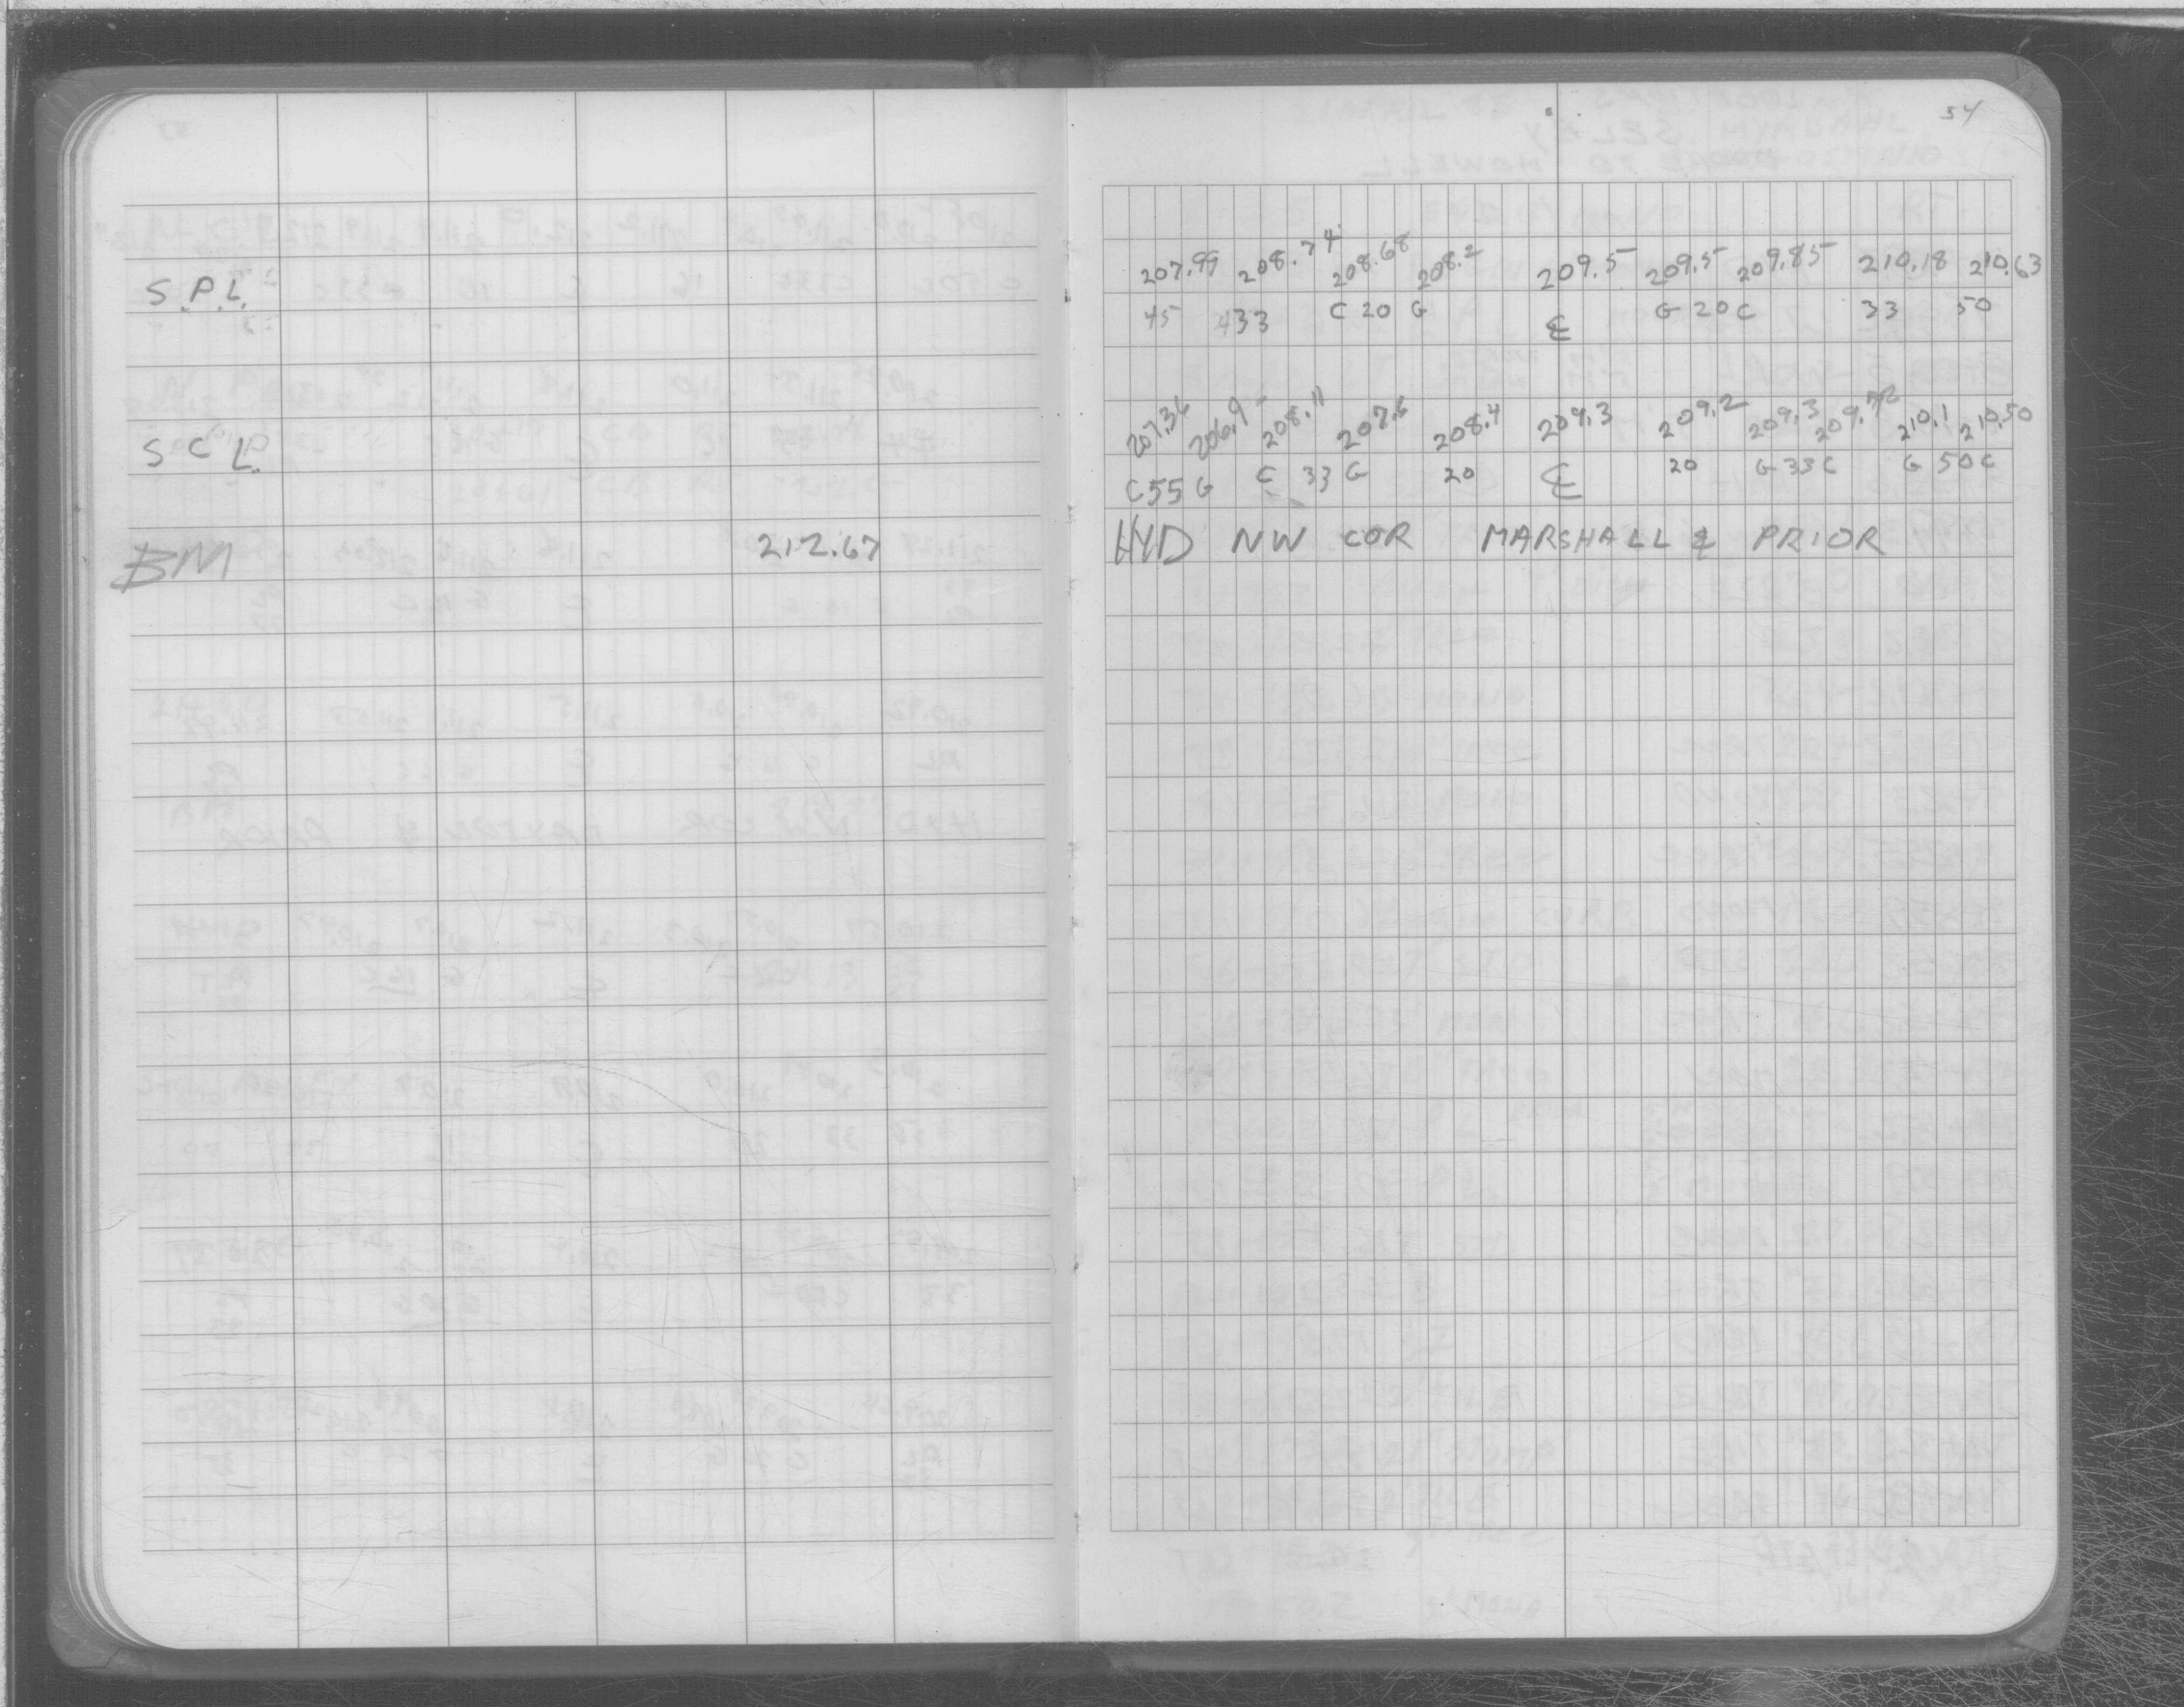 54
207.99 208.74 208.68 208.2 209.5 209.5 209.85 210.18 210.63
S.P.L. 45 433 C 20 G ℄ G 20 C 33 50
207.36 206.9 208.11 207.6 208.4 209.3 209.2 209.3 210.1 210.50
S C L. C 55 G C 33 G 20 ℄ 20 G 33 C G 50 C
BM 212.67 HYD NW COR MARSHALL & PRIOR